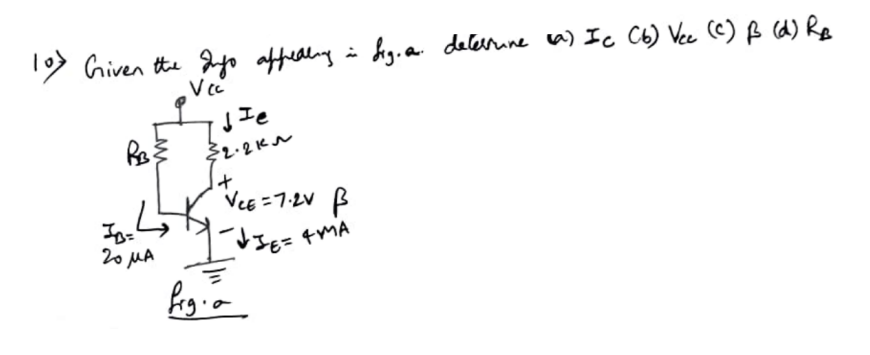 10) Given the Info appearing in fig.a. determine (a) Ic (b) Vcc (c) β (d) RB
Vcc
↓ Ic
RB
2.2KΩ
+
VCE = 7.2V β
IB=
20 μA
- ↓ IE = 4mA
fig.a